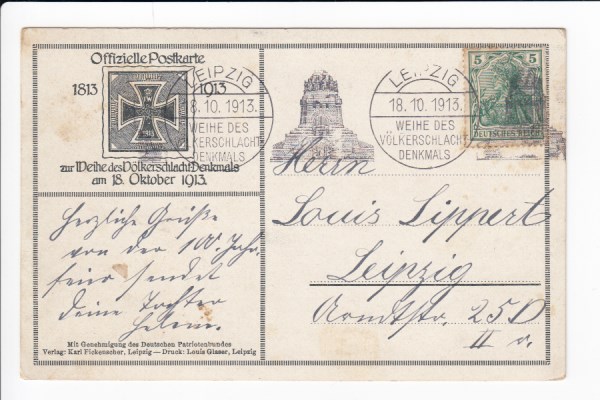 Offizielle Postkarte
1813 1913
zur Weihe des Völkerschlacht-Denkmals
am 18. Oktober 1913.
LEIPZIG
18.10.1913.
WEIHE DES
VÖLKERSCHLACHT
DENKMALS
LEIPZIG
18.10.1913.
WEIHE DES
VÖLKERSCHLACHT
DENKMALS
5 5
DEUTSCHES REICH
Herrn
Louis Lippert
Leipzig
Arndtstr. 25D
II r.
Herzliche Grüße
von der 100. Jahr.
feier sendet
Deine Tochter
Helene.
Mit Genehmigung des Deutschen Patriotenbundes
Verlag: Karl Fickenscher, Leipzig — Druck: Louis Glaser, Leipzig